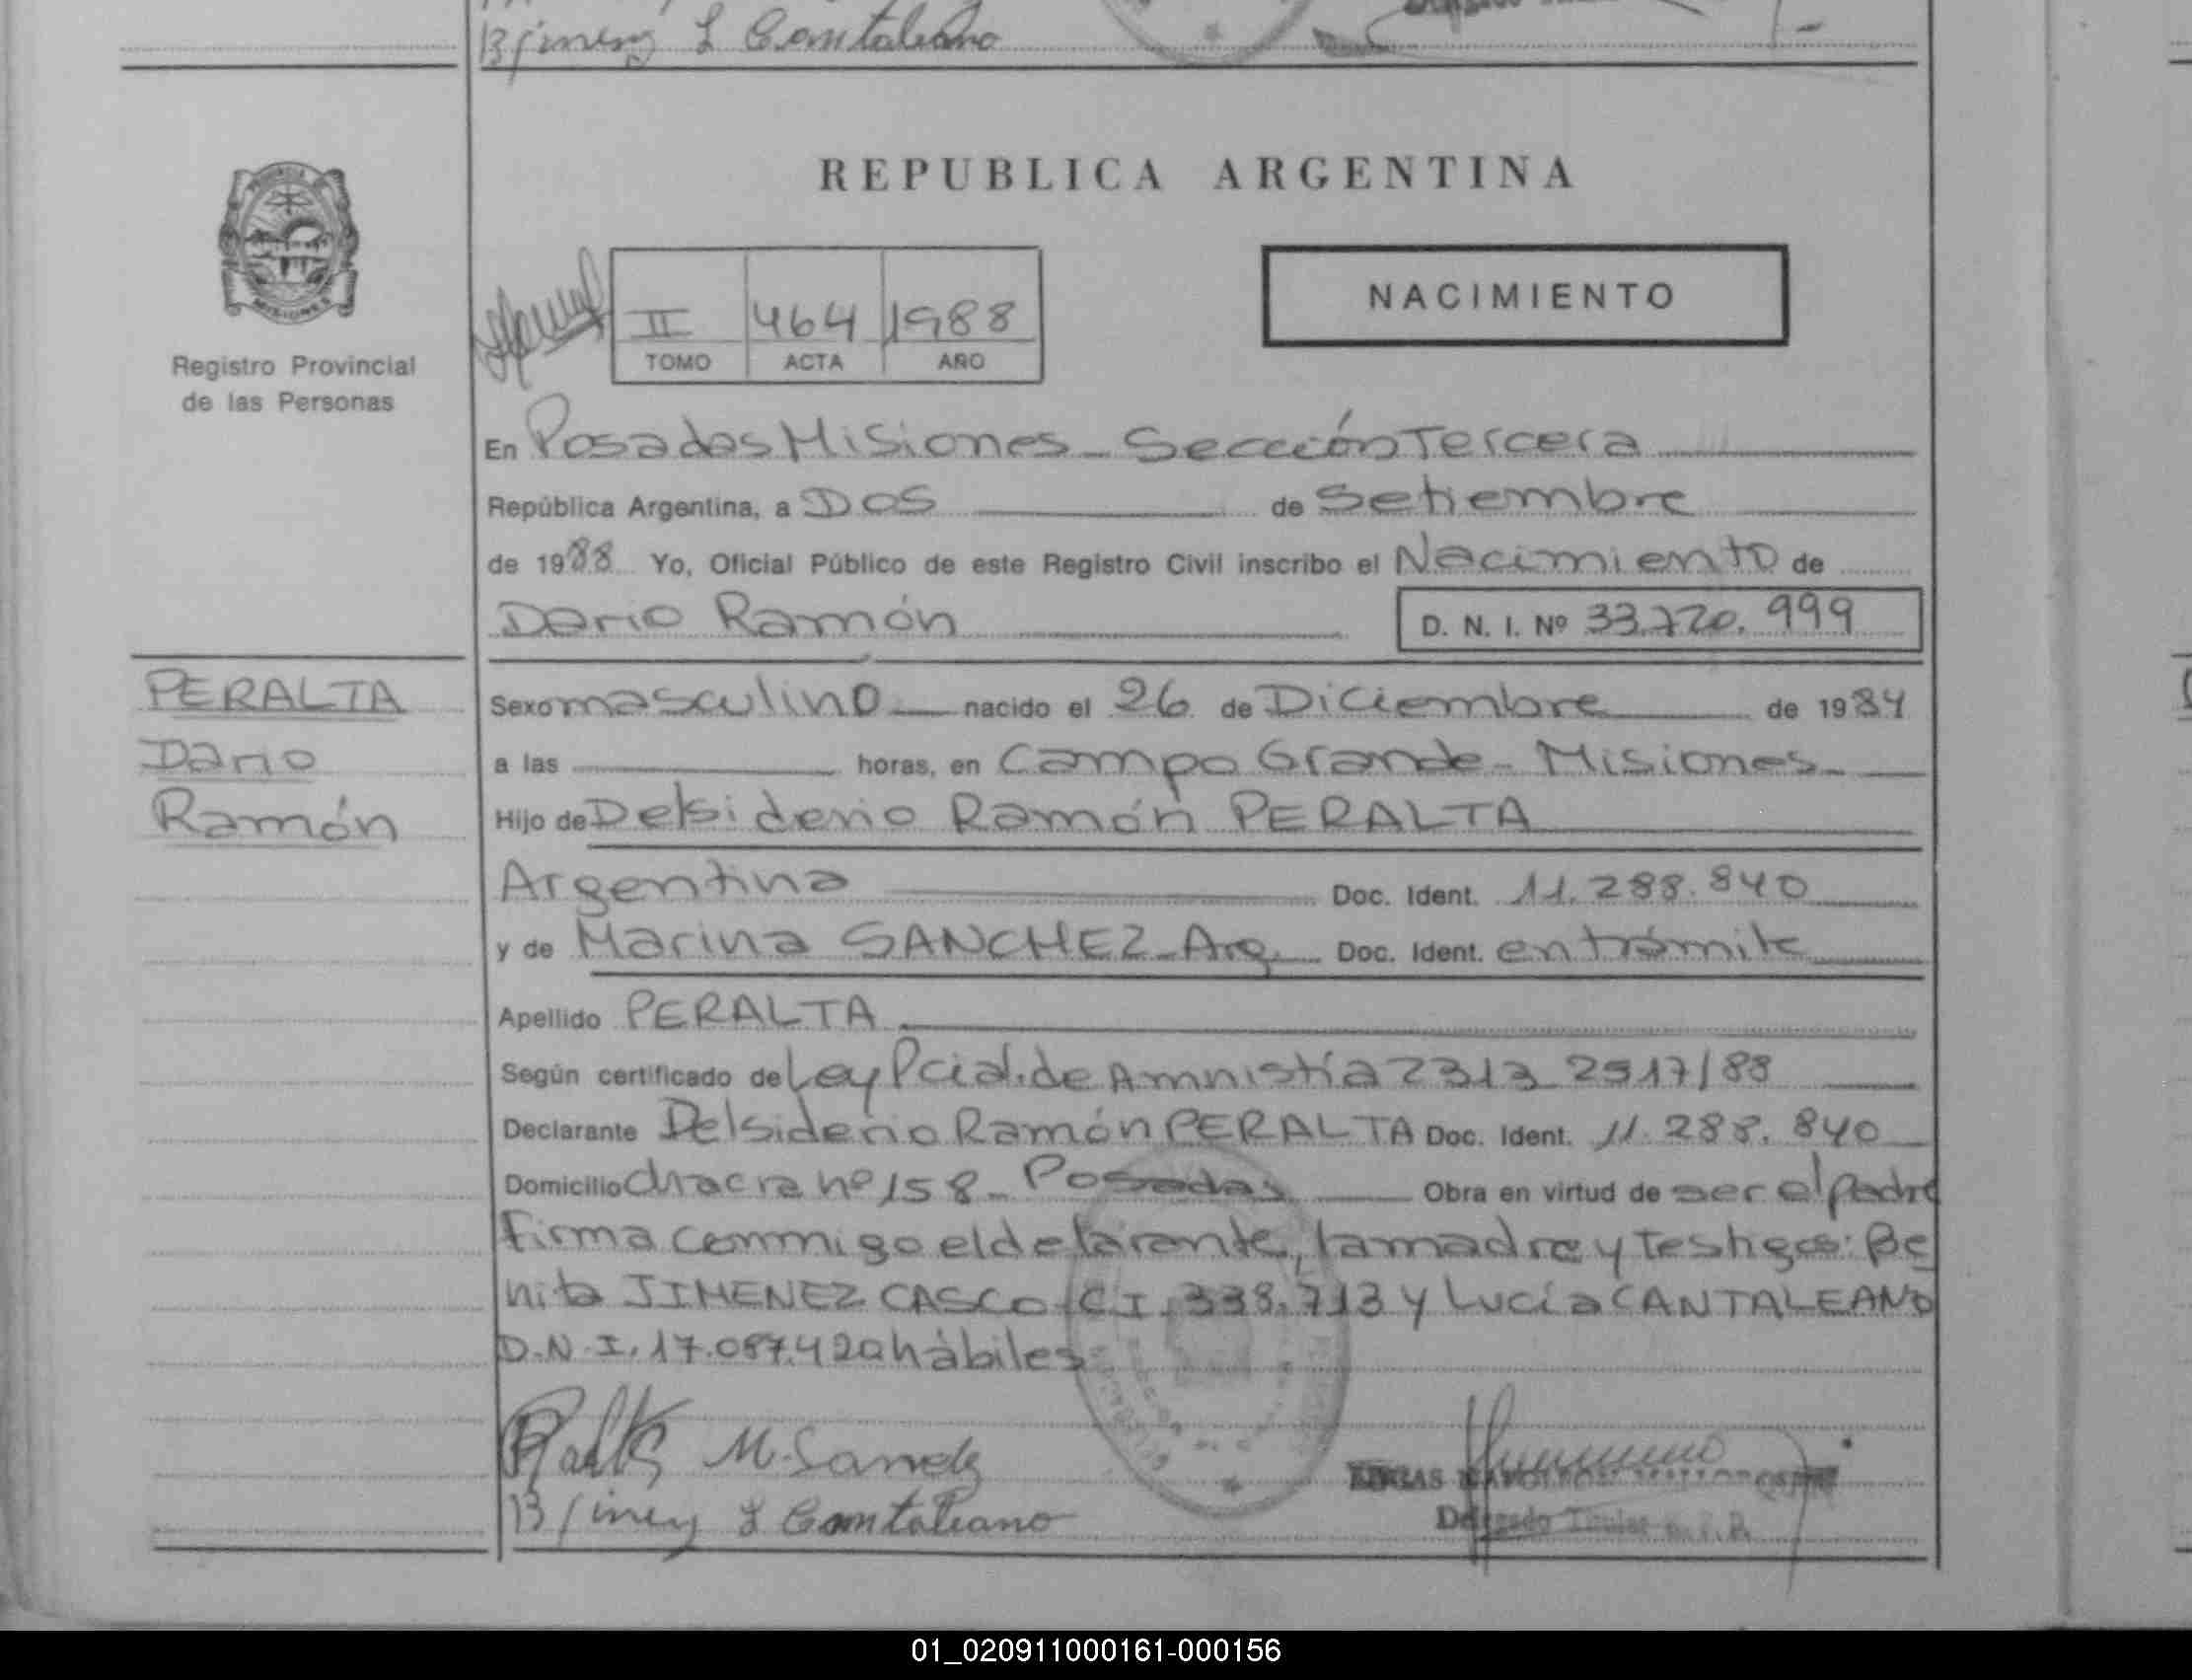 B Jimenez L Cantaleano
REPUBLICA ARGENTINA
PROVINCIA DE
MISIONES
Registro Provincial
de las Personas
II 464 1988
TOMO ACTA AÑO
NACIMIENTO
En Posadas Misiones - Sección Tercera
República Argentina, a Dos de Setiembre
de 1988 Yo, Oficial Público de este Registro Civil inscribo el Nacimiento de
Dario Ramón D. N. I. Nº 33.720.999
PERALTA
Dario
Ramón
Sexo masculino nacido el 26 de Diciembre de 1984
a las horas, en Campo Grande - Misiones
Hijo de Delsiderio Ramón PERALTA
Argentina Doc. Ident. 11.288.840
y de Marina SANCHEZ - Arg. Doc. Ident. en trámite
Apellido PERALTA
Según certificado de Ley Pcial. de Amnistía 2313 2517/88
Declarante Delsiderio Ramón PERALTA Doc. Ident. 11.288.840
Domicilio chacra nº 158 - Posadas Obra en virtud de ser el padre
firma conmigo el delarante, la madre y testigos: Be
nita JIMENEZ CASCO C.I. 338.713 y Lucía CANTALEANO
D.N.I. 17.087.420 hábiles
Peralta M. Sanchez
B Jimenez L Cantaleano
Delegado Titular R. P.
01_020911000161-000156